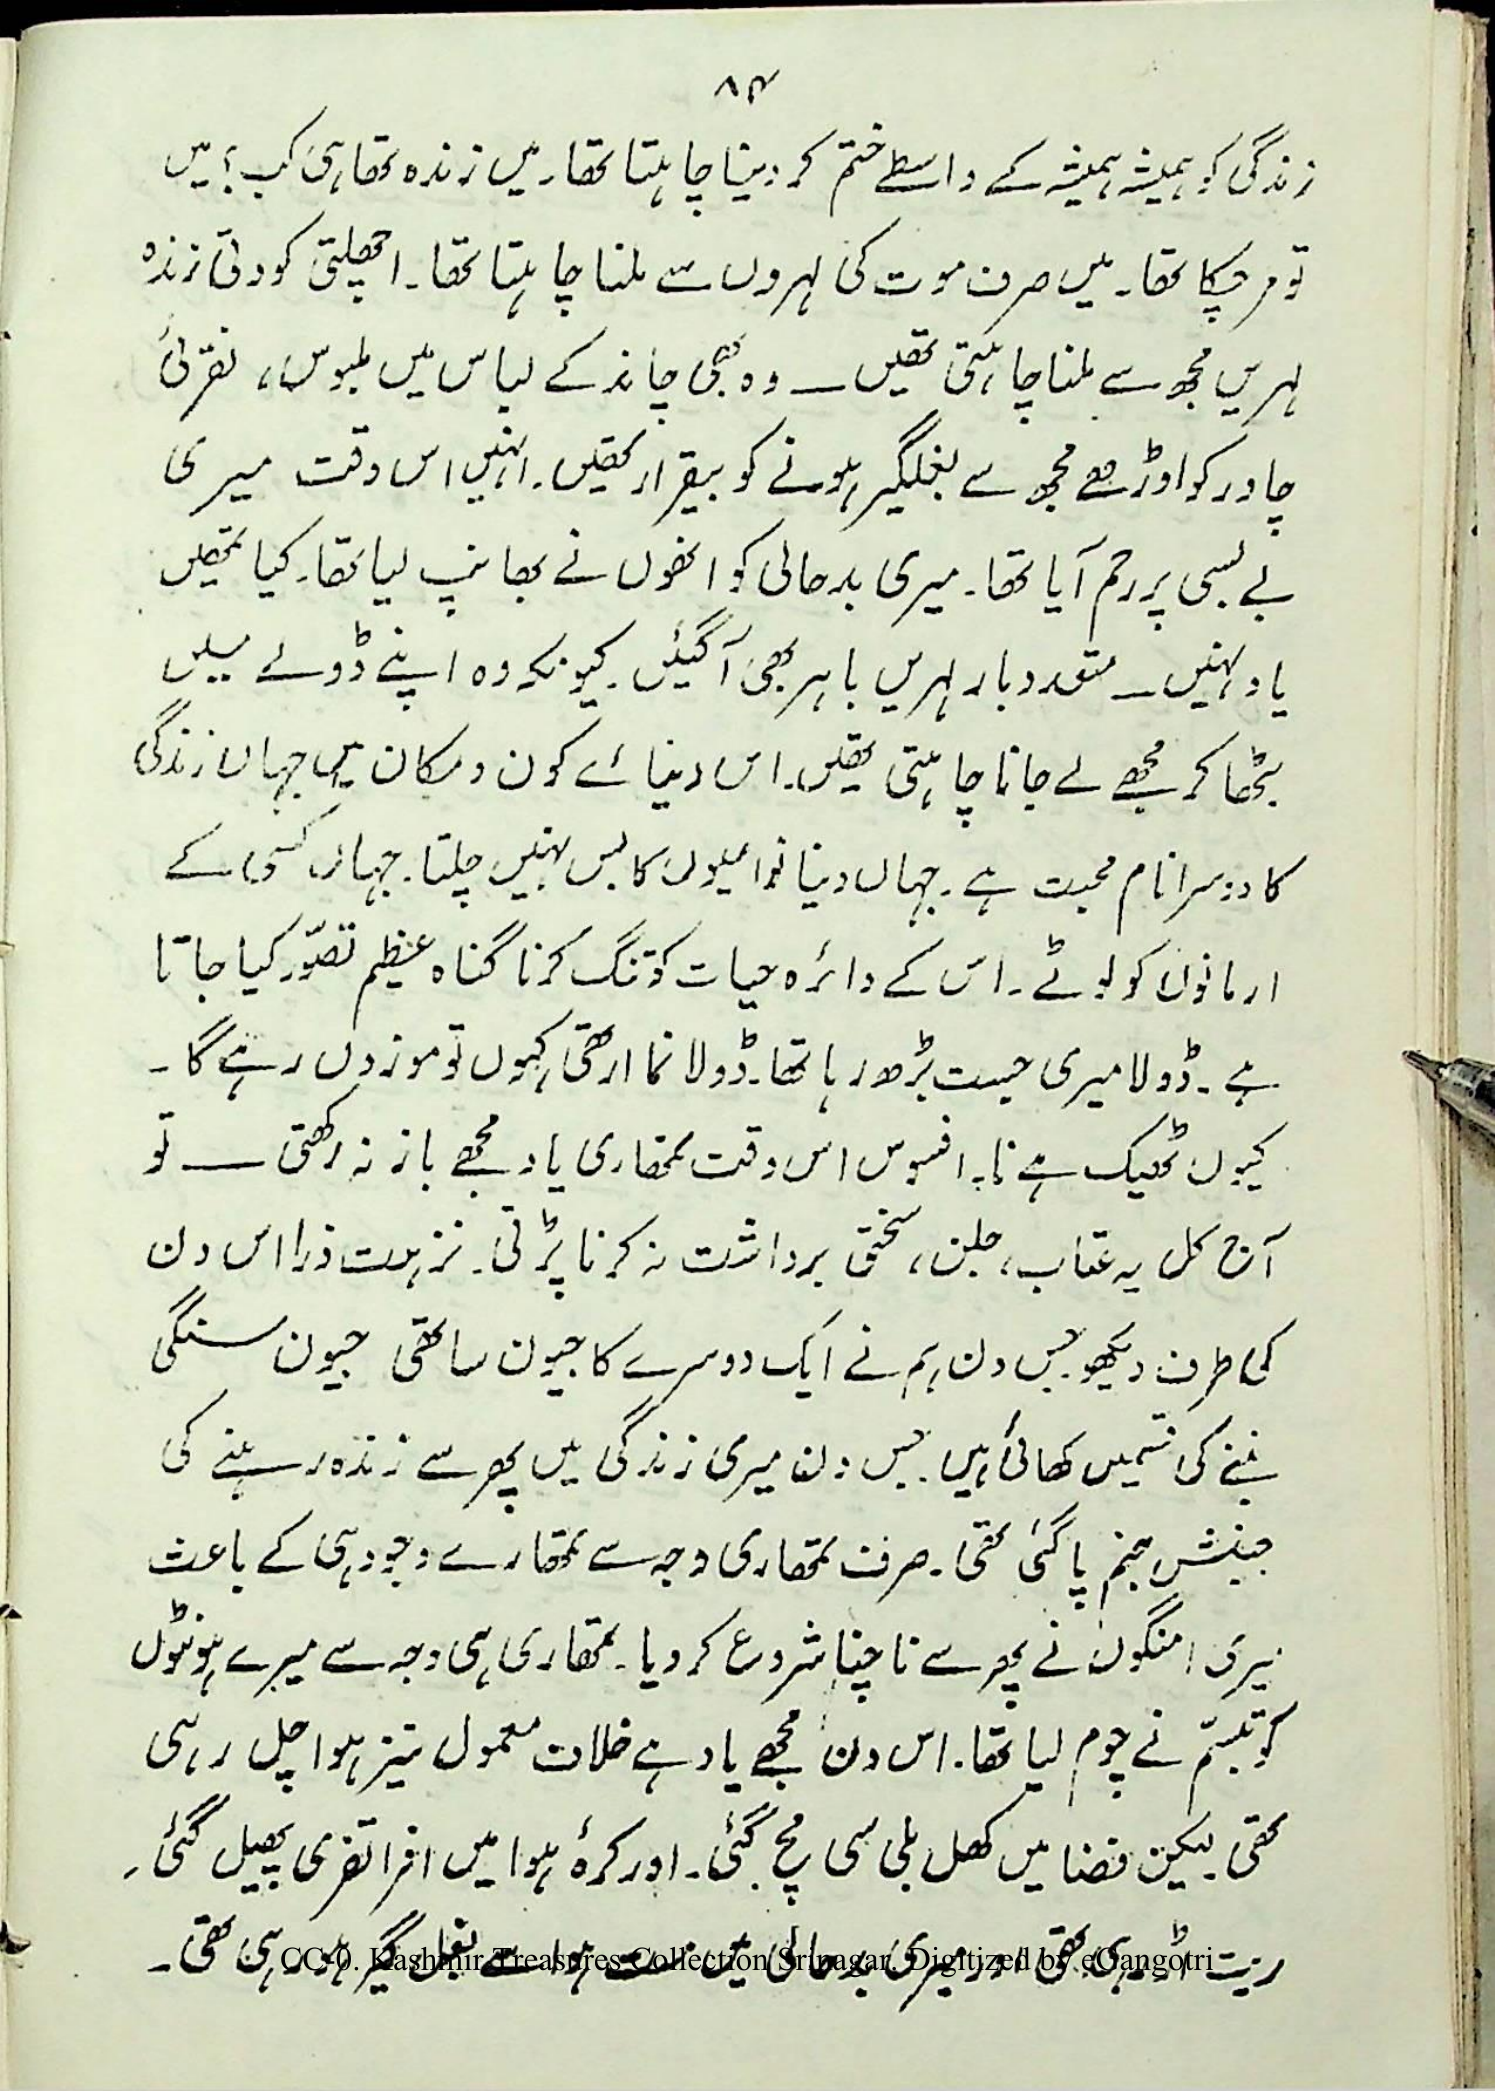 ۸۴
زندگی کو ہمیشہ ہمیشہ کے واسطے ختم کر دینا چاہتا تھا۔ میں زندہ تھا ہی کب؟ میں
تو مر چکا تھا۔ میں صرف موت کی لہروں سے ملنا چاہتا تھا۔ اچھلتی کودتی زندہ
لہریں مجھ سے ملنا چاہتی تھیں ــ وہ بھی چاند کے لباس میں ملبوس، نقرئی
چادر کو اوڑھے مجھ سے بغلگیر ہونے کو بیقرار تھیں۔ انہیں اس وقت میری
بے بسی پر رحم آیا تھا۔ میری بدحالی کو انھوں نے بھانپ لیا تھا۔ کیا تمھیں
یاد نہیں ــ متعدد بار لہریں باہر بھی آ گئیں۔ کیونکہ وہ اپنے ڈولے میں
بٹھا کر مجھے لے جانا چاہتی تھیں۔ اس دنیائے کون و مکان میں جہاں زندگی
کا دوسرا نام محبت ہے۔ جہاں دنیا والیوں کا بس نہیں چلتا۔ جہاں کسی کے
ارمانوں کو لوٹے۔ اس کے دائرہ حیات کو تنگ کرنا گناہ عظیم تصوّر کیا جاتا
ہے۔ ڈولا میری جیست بڑھ رہا تھا۔ ڈولا نما ارتھی کہوں تو موزوں رہے گا۔
کیوں ٹھیک ہے نا۔ افسوس اس وقت تمھاری یاد مجھے باز نہ رکھتی ــ تو
آج کل یہ عتاب، جلن، سختی برداشت نہ کرنا پڑتی۔ نزہت ذرا اس دن
کی طرف دیکھو جس دن ہم نے ایک دوسرے کا جیون ساتھی جیون سنگی
بننے کی قسمیں کھائی ہیں۔ جس دن میری زندگی میں پھر سے زندہ رہنے کی
جنبش جنم پا گئی تھی۔ صرف تمھاری وجہ سے تمھارے وجود ہی کے باعث
میری امنگوں نے پھر سے ناچنا شروع کر دیا۔ تمھاری ہی وجہ سے میرے ہونٹوں
کو تبسّم نے چوم لیا تھا۔ اس دن مجھے یاد ہے خلاف معمول تیز ہوا چل رہی
تھی۔ لیکن فضا میں کھل بلی سی مچ گئی۔ اور کرۂ ہوا میں افراتفری پھیل گئی۔
ریت اڑ رہی تھی اور میری بدحالی میں ہوا سے بغل گیر ہو رہی تھی۔
CC-0. Kashmir Treasures Collection Srinagar. Digitized by eGangotri